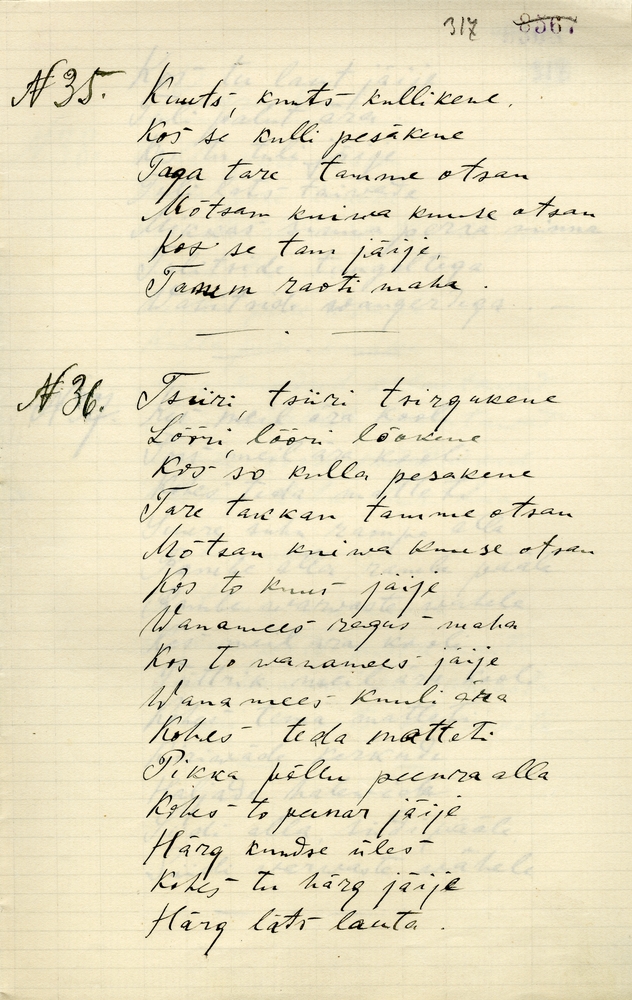 317 8567
N 35. Kuuts, kuuts kullikene,
Kos se kulli pesäkene
Taga tare tamme otsan
Mõtsan kuiwa kuuse otsan
Kos se tam jäije,
Tamm raoti maha.
N 36. Tsiiri, tsiiri tsirgukene
Lööri, lööri lõokene
Kos so kulla pesakene
Tare takkan tamme otsan
Mõtsan kuiwa kuuse otsan
Kos to kuus jäije
Wanamees ragus maha
Kos to wanamees jäije
Wanamees kuuli ära
Kohes teda matteti
Pikka põllu peenra alla
Kohes to peenar jäije
Härg kundse üles
Kohes tu härg jäije
Härg läts lauta.